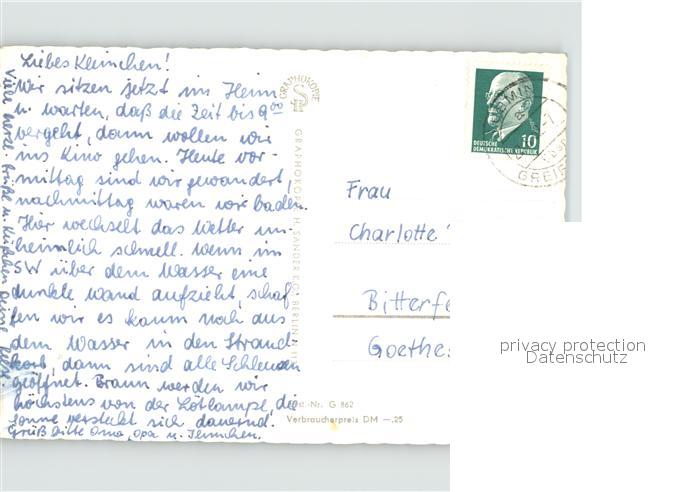 Liebes Kleinchen!
Wir sitzen jetzt im Heim
u. warten, daß die Zeit bis 9⁰⁰
vergeht, dann wollen wir
ins Kino gehen. Heute vor-
mittag sind wir gewandert,
nachmittag waren wir baden.
Hier wechselt das Wetter un-
heimlich schnell. Wenn im
SW über dem Wasser eine
dunkle Wand aufzieht, schaf-
fen wir es kaum noch aus
dem Wasser in den Strand-
korb, dann sind alle Schleusen
geöffnet. Braun werden wir
höchstens von der Lötlampe, die
Sonne versteckt sich dauernd.
Grüß bitte Oma, Opa u.
Viele herzl. Grüße u. Küßchen Deine
GRAPHOKOPF
GRAPHOKOPF H. SANDER K.G. BERLIN
10
DEUTSCHE
DEMOKRATISCHE REPUBLIK
GREIF
Frau
Charlotte
Bitterfe
Goethe
privacy protection
Datenschutz
Best.-Nr. G 862
Verbraucherpreis DM —,25